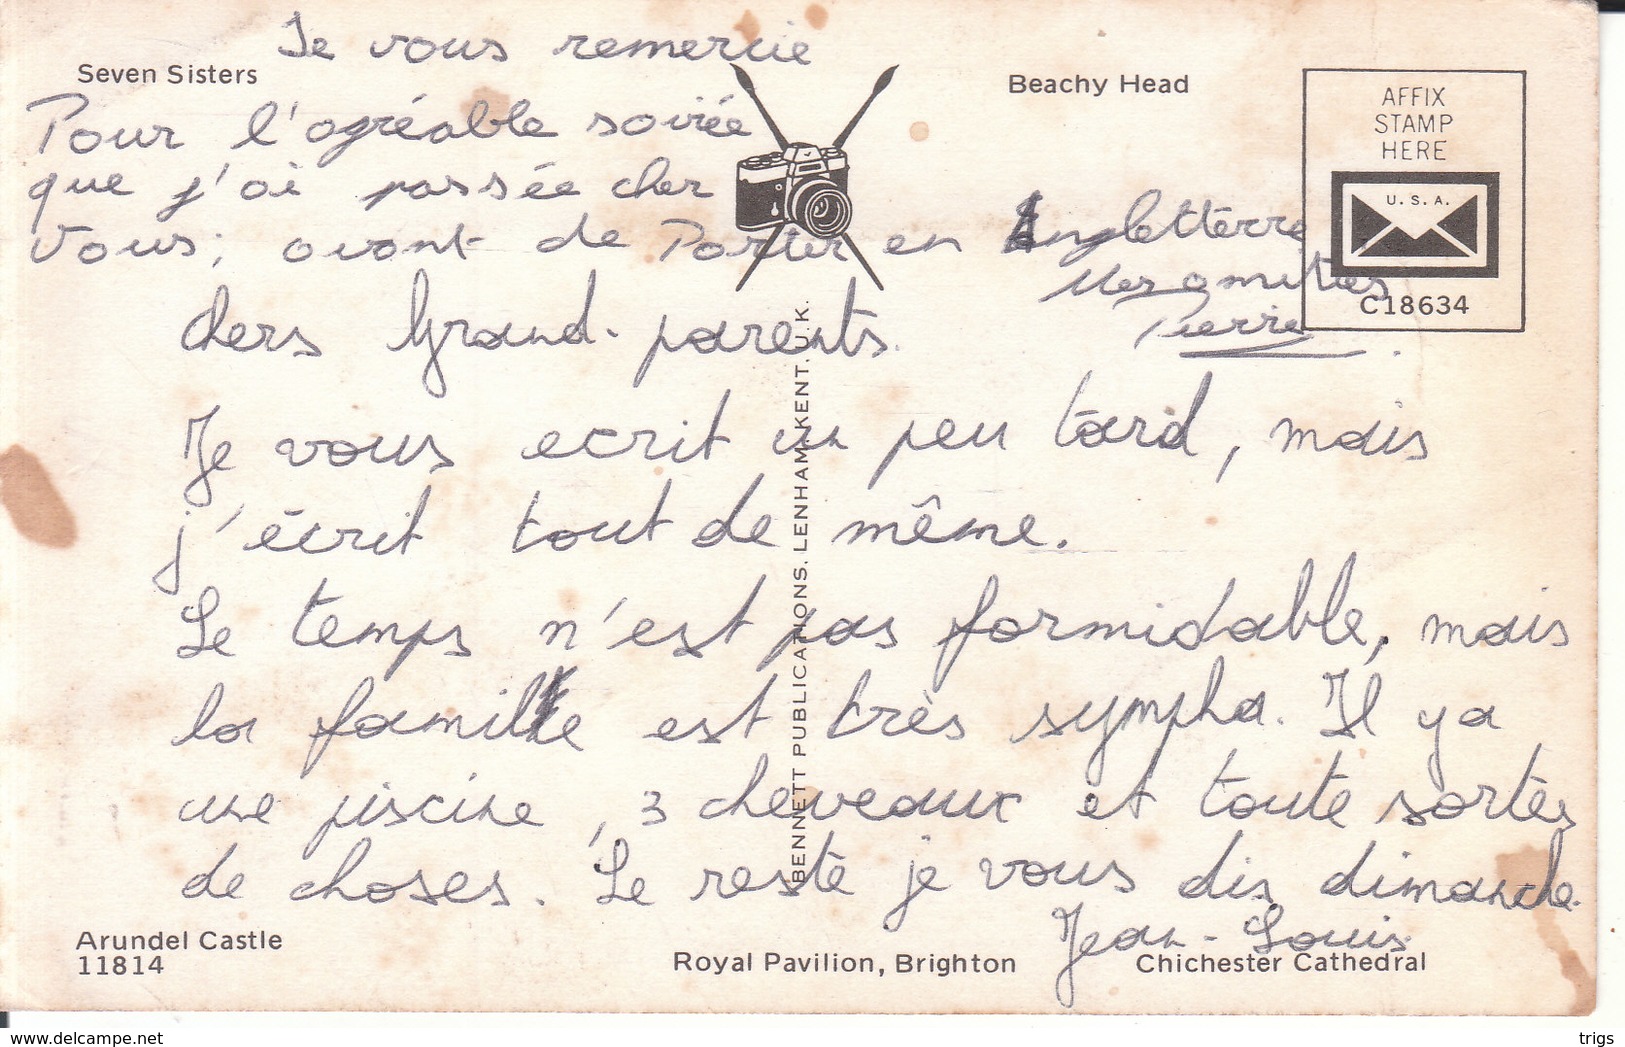 Je vous remercie
Seven Sisters
Beachy Head
Pour l'agréable soirée
que j'ai passée cher
vous; avant de Partir en Angletterre
Mes amitiés
Pierre
AFFIX
STAMP
HERE
U.S.A.
C18634
chers Grand-parents.
Je vous ecrit un peu tard, mais
j'écrit tout de même.
Le temps n'est pas formidable, mais
la famille est très sympha. Il y a
une piscine, 3 cheveaux et toute sortes
de choses. Le reste je vous dis dimanche.
Jean-Louis
BENNETT PUBLICATIONS. LENHAM. KENT. U.K.
Arundel Castle
11814
Royal Pavilion, Brighton
Chichester Cathedral
https://www.delcampe.net
trigs